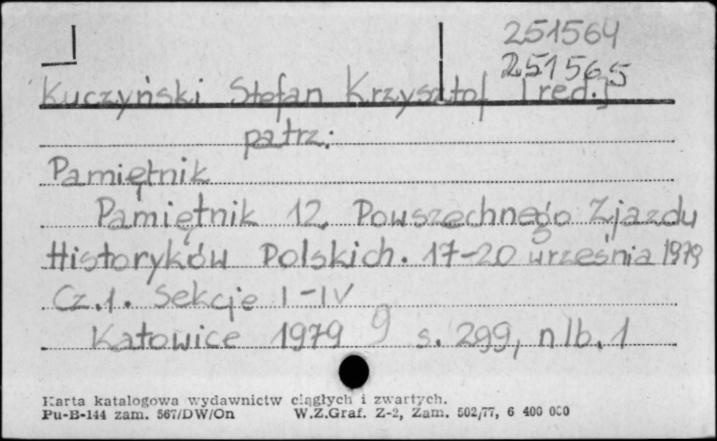 251564
251565
Kuczyński Stefan Krzysztof [red.]
patrz:
Pamiętnik
Pamiętnik 12. Powszechnego Zjazdu
Historyków Polskich. 17-20 września 1979
Cz.1. Sekcje I-IV
Katowice 1979 9 s. 299, nlb. 1
Karta katalogowa wydawnictw ciągłych i zwartych.
Pu-B-144 zam. 567/DW/On W.Z.Graf. Z-2, Zam. 502/77, 6 400 000